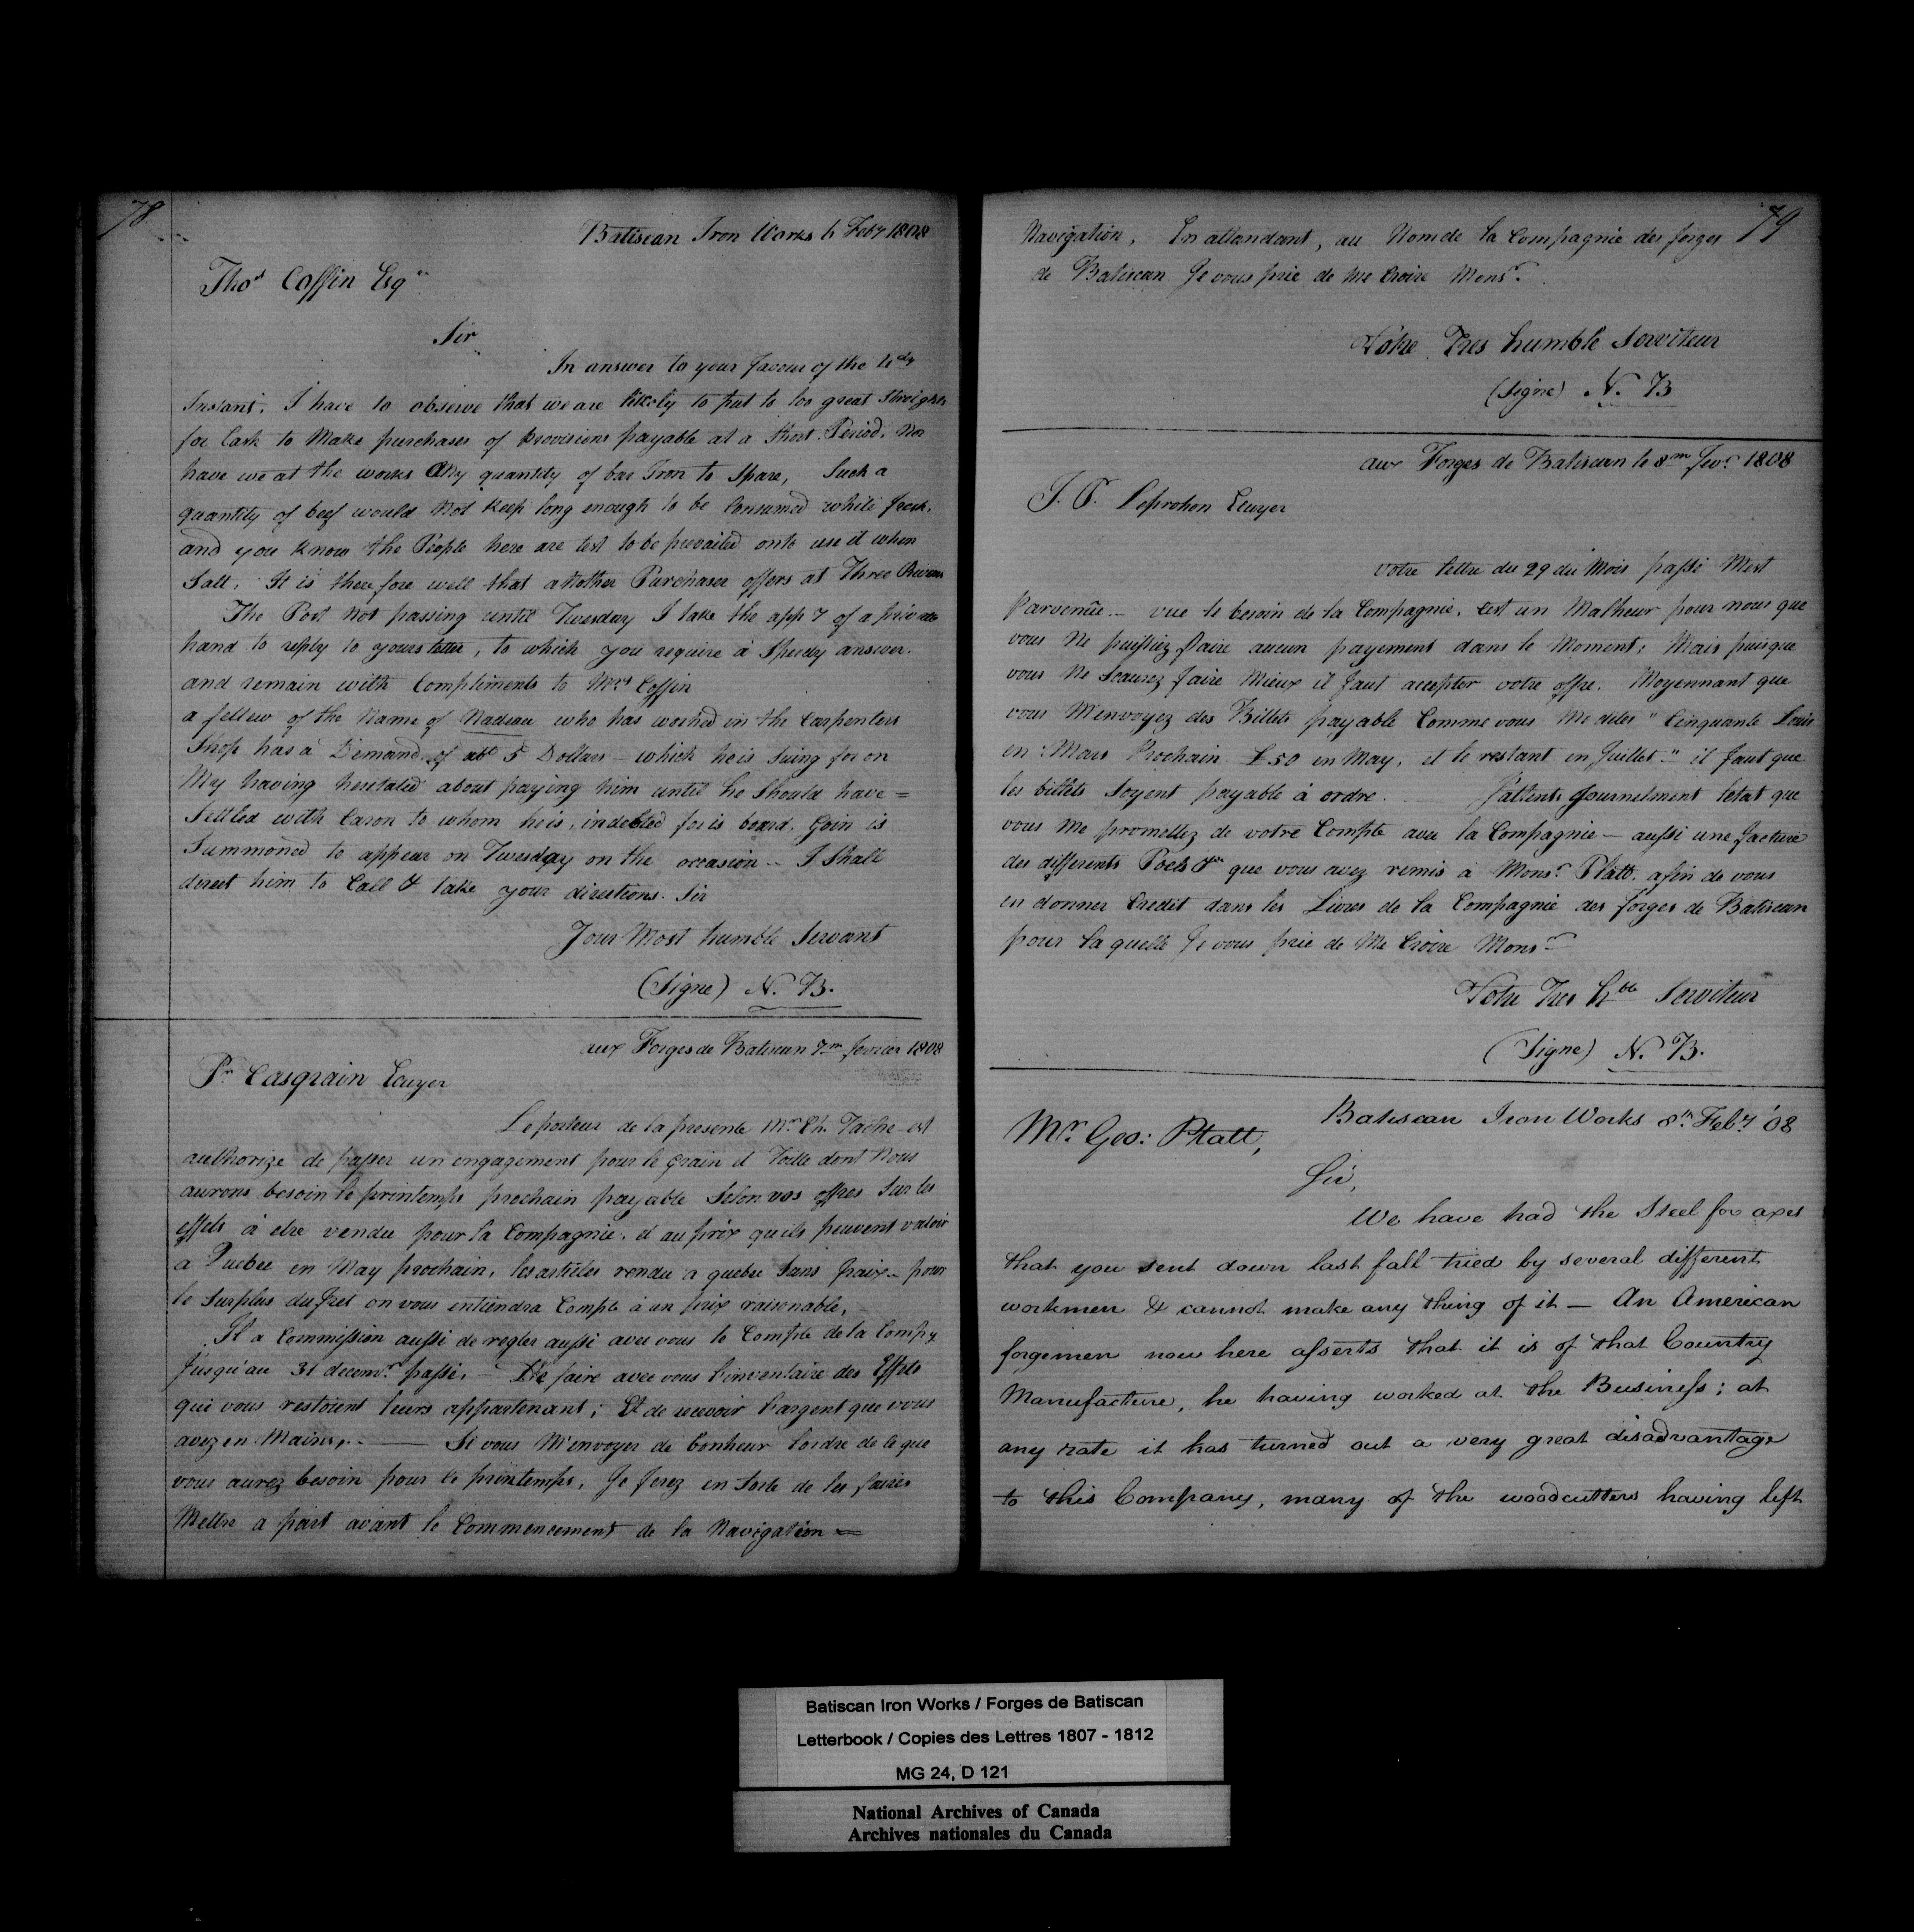 78
Batiscan Iron Works 6 Feby 1808
Thos Coffin Esqr
Sir
In answer to your favour of the
Instant. I have to observe that we are likely to put to too great Streights
for Cash to Make purchases of provisions payable at a Short Period. Nor
have we at the works any quantity of bar Iron to Spare, Such a
quantity of beef would Not keep long enough to be Consumed while fresh,
and you know the People here are not to be prevailed onto use it when
Salt. It is therefore well that another Purchaser offers at Three Rivers
The Post Not passing until Tuesday I take the appy of a private
hand to reply to yours letter, to which you require a Speedy answer.
and remain with Compliments to Mrs Coffin
a fellew of the Name of Nadeau who has worked in the Carpenters
Shop has a Demand of abt 5 Dollars – which he is Suing for on
My having hesitated about paying him until he Should have =
Settled with Caron to whom he is indebted for is board. Goin is
Summoned to appear on Tuesday on the occasion – I Shall
direct him to Call & take your directions. Sir
Your Most humble Servant
(Signe) N. B.
aux Forges de Batiscan 7m fevrier 1808
Pr Casgrain Ecuyer
Le porteur de la presente Mr Ch. Tache est
authorize de passer un engagement pour le grain et Toille dont Nous
aurons besoin le printemps prochain payable Selon vos offres Sur les
effets à etre vendu pour la Compagnie. et au prix quils peuvent valoir
a Quebec en May prochain, les articles rendu a quebec Sans fraix – pour
le Surplus du fret on vous entiendra Compte à un prix raisonable,
Il a Commission aussi de regler aussi avec vous le Compte de la Compy
Jusqu'au 31 decemr passé, – De faire avec vous l'inventaire des Effets
qui vous restoient leurs appartenant; Et de recevoir l'argent que vous
avez en Mains, – Si vous M'envoyer de bonheur l'ordre de ce que
vous aurez besoin pour le printemps, Je ferez en Sorte de les faires
Mettre a part avant le Commencement de la Navigation =
79
Navigation, En attandant, au Nom de la Compagnie des forges
de Batiscan Je vous prie de Me Croire Monsr
Votre Tres humble Serviteur
(Signe) N. B
aux Forges de Batiscan le 8m fevr 1808
Leprohon Ecuyer
votre lettre du 29 du Mois passé M'est
Parvenue – vue le besoin de la Compagnie, C'est un Malheur pour nous que
vous Ne puissiez faire aucun payement dans le Moment; Mais puisque
vous Ne Scaurez faire Mieux il faut accepter votre offre. Moyennant que
vous M'envoyez des Billets payable Comme vous Me dites "Cinquante Louis
en Mars Prochain £50 en May, et le restant en Juillet" il faut que
les billets Soyent payable à ordre. J'attents Journelment letat que
vous Me promettez de votre Compte avec la Compagnie – aussi une facture
des differents Poels &c que vous avez remis à Monsr Platt. afin de vous
en donner Credit dans les Livres de la Compagnie des forges de Batiscan
pour laquelle Je vous prie de Me Croire Monsr
Votre Tres hble Serviteur
(Signe) N. B.
Batiscan Iron Works 8th Feby '08
Mr Geo: Platt,
Sir,
We have had the Steel for axes
that you sent down last fall tried by several different
workmen & cannot make any thing of it – An American
forgemen now here asserts that it is of that Country
Manufacture, he having worked at the Business; at
any rate it has turned out a very great disadvantage
to this Company, many of the woodcutters having left
Batiscan Iron Works / Forges de Batiscan
Letterbook / Copies des Lettres 1807 - 1812
MG 24, D 121
National Archives of Canada
Archives nationales du Canada